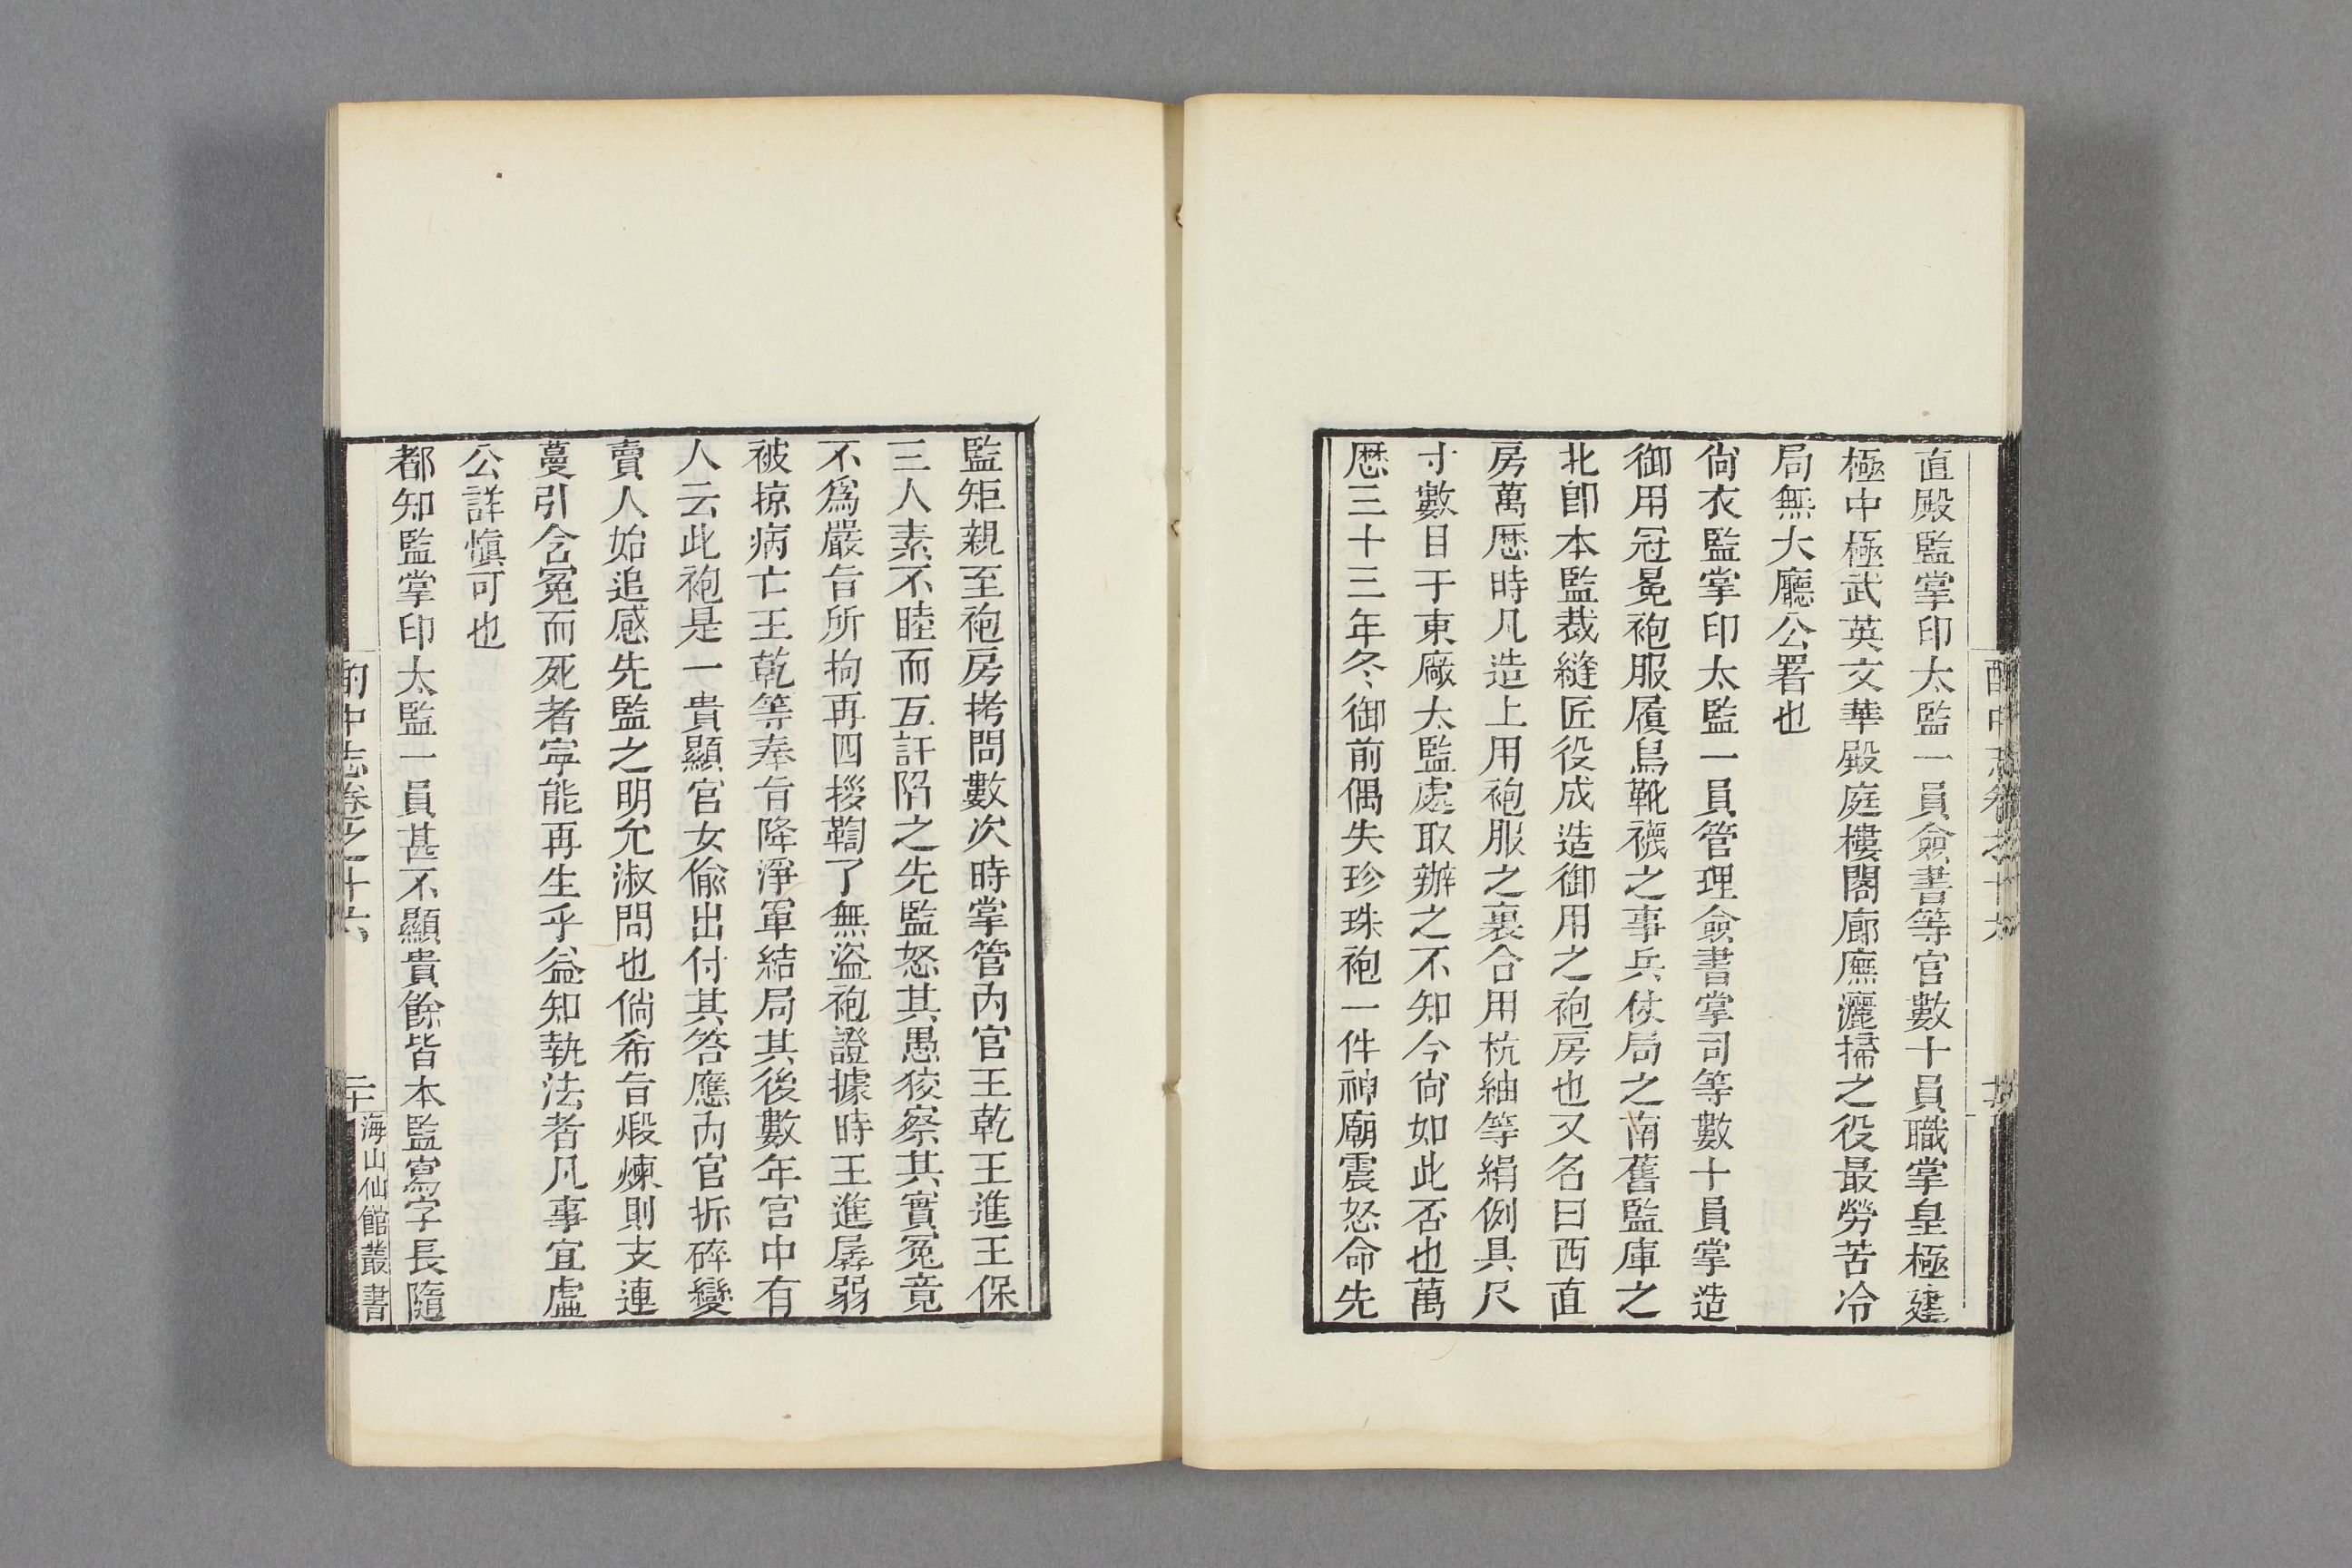 直殿監掌印太監一員僉書等官數十員職掌皇極建
極中極武英文華殿庭樓閣廊廡灑掃之役最勞苦冷
局無大廳公署也
尙衣監掌印太監一員管理僉書掌司等數十員掌造
御用冠冕袍服履舄靴襪之事兵仗局之南舊監庫之
北卽本監裁縫匠役成造御用之袍房也又名曰西直
房萬厯時凡造上用袍服之裏合用杭紬等絹例具尺
寸數目于東廠太監處取辦之不知今尙如此否也萬
厯三十三年冬御前偶失珍珠袍一件神廟震怒命先
監矩親至袍房拷問數次時掌管內官王乾王進王保
三人素不睦而互訐陷之先監怒其愚狡察其實冤竟
不爲嚴旨所拘再四授鞫了無盜袍證據時王進孱弱
被掠病亡王乾等奉旨降淨軍結局其後數年宮中有
人云此袍是一貴顯官女偸出付其答應內官拆碎變
賣人始追感先監之明允淑問也倘希旨煅煉則支連
蔓引含冤而死者寧能再生乎益知執法者凡事宜虛
公詳愼可也
都知監掌印太監一員甚不顯貴餘皆本監寫字長隨
酌中志卷之十六
二十
海山仙館叢書